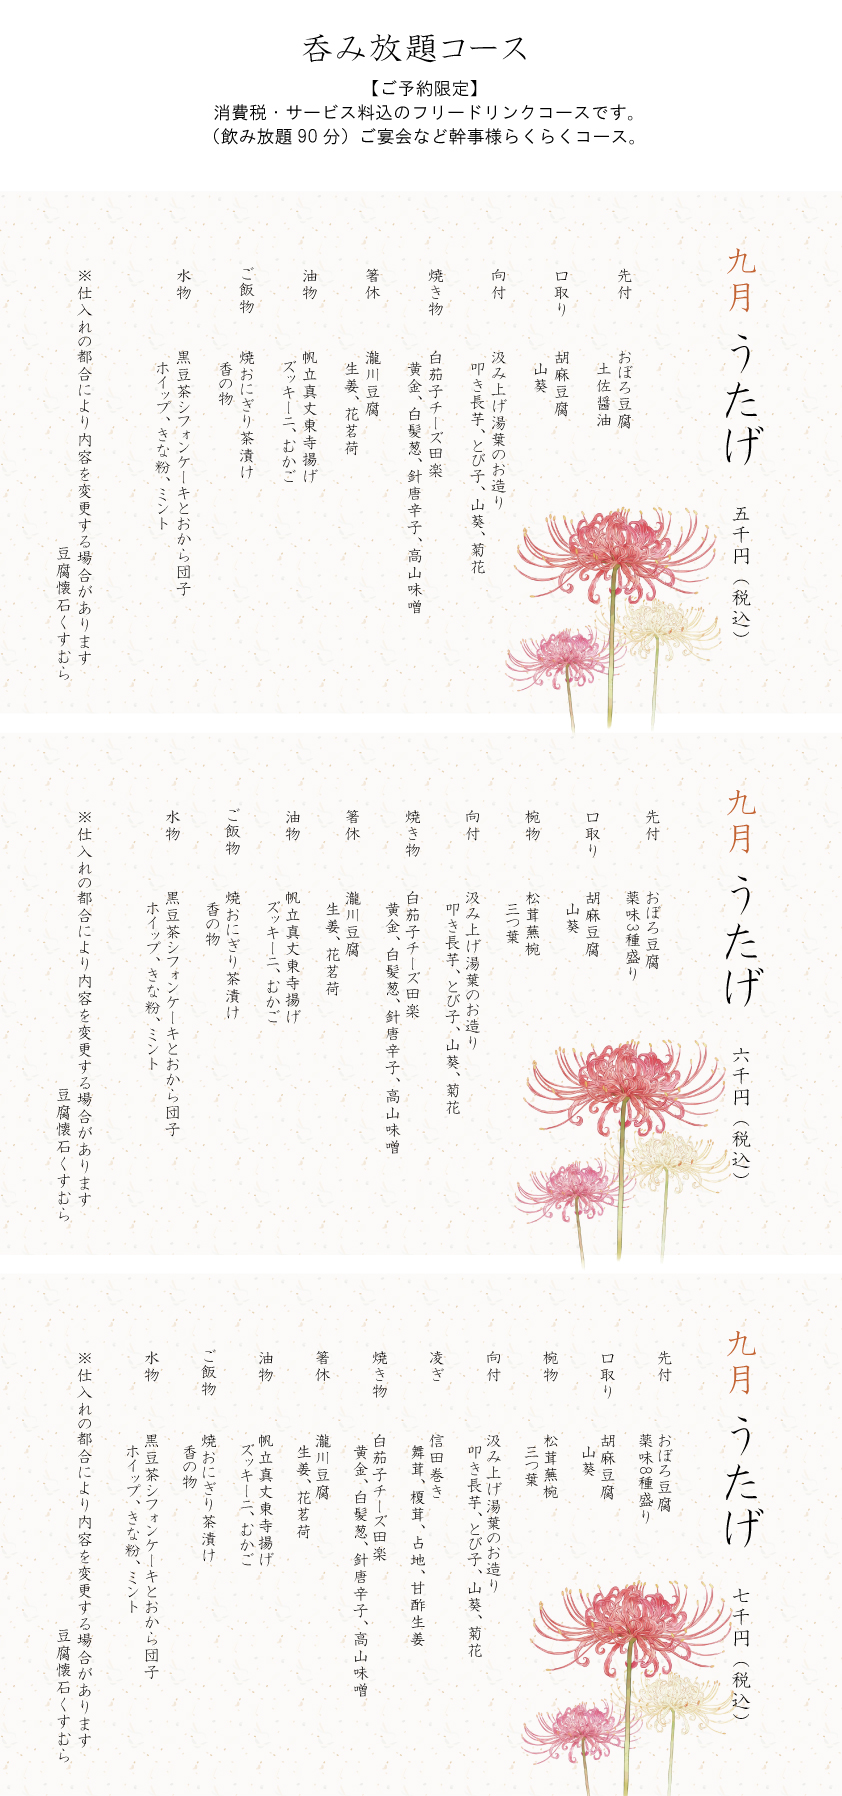 呑み放題コース
【ご予約限定】
消費税・サービス料込のフリードリンクコースです。
（飲み放題 90 分）ご宴会など幹事様らくらくコース。
九月 うたげ 五千円（税込）
先付 おぼろ豆腐
土佐醤油
口取り 胡麻豆腐
山葵
向付 汲み上げ湯葉のお造り
叩き長芋、とび子、山葵、菊花
焼き物 白茄子チーズ田楽
黄金、白髪葱、針唐辛子、高山味噌
箸休 瀧川豆腐
生姜、花茗荷
油物 帆立真丈東寺揚げ
ズッキーニ、むかご
ご飯物 焼おにぎり茶漬け
香の物
水物 黒豆茶シフォンケーキとおから団子
ホイップ、きな粉、ミント
※仕入れの都合により内容を変更する場合があります
豆腐懐石くすむら
九月 うたげ 六千円（税込）
先付 おぼろ豆腐
薬味3種盛り
口取り 胡麻豆腐
山葵
椀物 松茸蕪椀
三つ葉
向付 汲み上げ湯葉のお造り
叩き長芋、とび子、山葵、菊花
焼き物 白茄子チーズ田楽
黄金、白髪葱、針唐辛子、高山味噌
箸休 瀧川豆腐
生姜、花茗荷
油物 帆立真丈東寺揚げ
ズッキーニ、むかご
ご飯物 焼おにぎり茶漬け
香の物
水物 黒豆茶シフォンケーキとおから団子
ホイップ、きな粉、ミント
※仕入れの都合により内容を変更する場合があります
豆腐懐石くすむら
九月 うたげ 七千円（税込）
先付 おぼろ豆腐
薬味8種盛り
口取り 胡麻豆腐
山葵
椀物 松茸蕪椀
三つ葉
向付 汲み上げ湯葉のお造り
叩き長芋、とび子、山葵、菊花
凌ぎ 信田巻き
舞茸、榎茸、占地、甘酢生姜
焼き物 白茄子チーズ田楽
黄金、白髪葱、針唐辛子、高山味噌
箸休 瀧川豆腐
生姜、花茗荷
油物 帆立真丈東寺揚げ
ズッキーニ、むかご
ご飯物 焼おにぎり茶漬け
香の物
水物 黒豆茶シフォンケーキとおから団子
ホイップ、きな粉、ミント
※仕入れの都合により内容を変更する場合があります
豆腐懐石くすむら